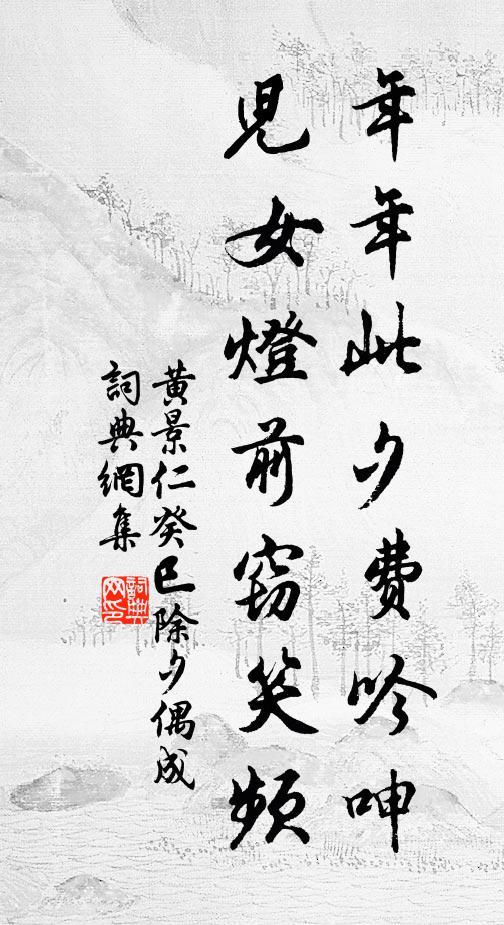 年年此夕費吟呻
兒女燈前窃笑頻
黃景仁癸巳除夕偶成
詞典網集